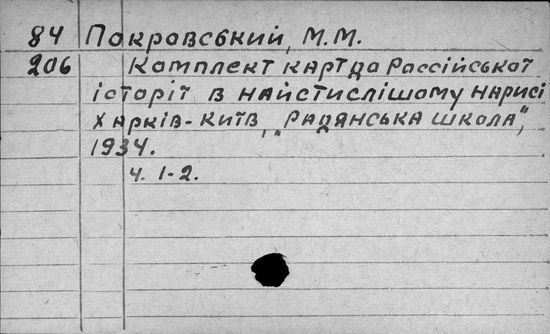 84 Покровський, М.М.
206 Комплект карт до Российської
історії в найстислішому нарисі
Харків-Київ, "Радянська школа",
1934.
ч. 1-2.